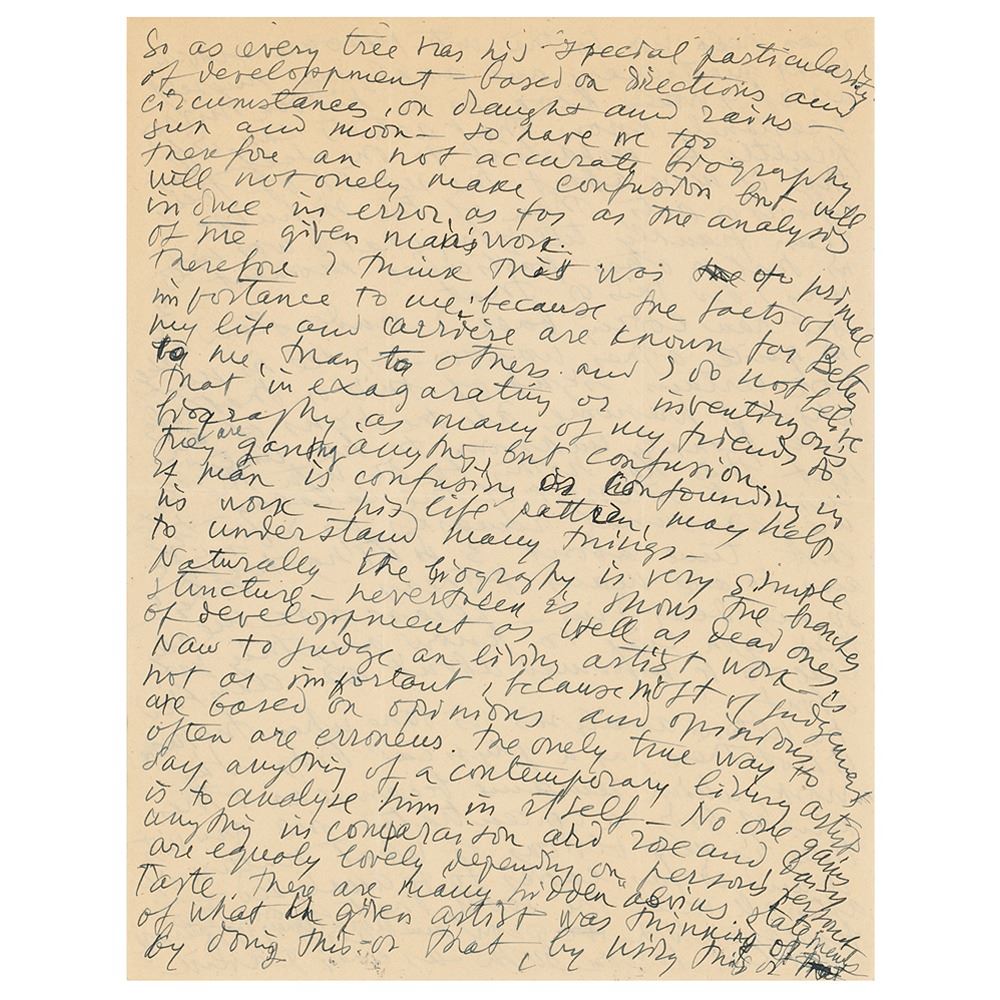 So as every tree has his special particularity
of developpment – based on directions and
circumstances, on draught and rains –
sun and moon – so have we too
therefore an not accurate biography
will not onely make confusion but will
induce in error, as far as the analysis
of the given man's work.
therefore I think that was of primal
importance to me; because the facts of
my life and carrière are known far Better
to me, than to others. and I do not belive
that in exagarating or inventing one's
biography, as many of my friends do
they are gaining anything, but confusion.
If man is confusing or confounding in
his work – his life pattern, may help
to understand many things –
Naturally the biography is very simple
structure – nevertheen is shons the branches
of developpment as well as dead ones.
Naw to judge an living artist work – is
not as important, because most of judgement
are based on opinions and opinions
often are erroneus. The onely true way to
say anything of a contemporary living artist
is to analyse him in itself – No one gains
anything in comparaison and rose and daisy
are equaly lovely depending on person's
Taste, there are many hidden statements
of what given artist was thinking of
by doing this – or that, by using this or that